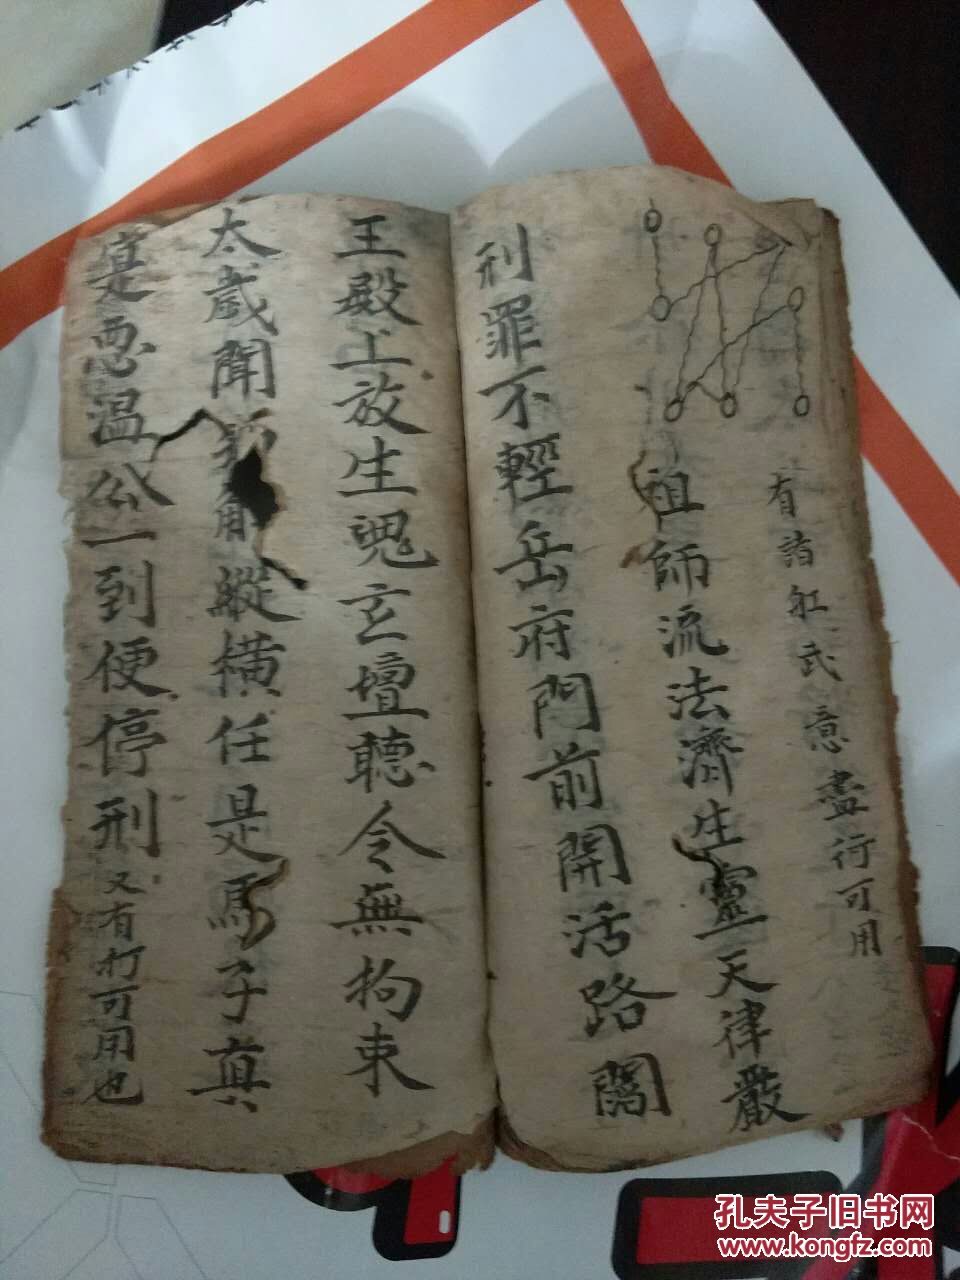 有諸缸武意盡行可用
祖師流法濟生靈天律嚴
刑罪不輕岳府門前開活路閻
王殿上放生魂玄壇聽令無拘束
太歲聞 用縱橫任是馬子真
寔惡温公一到便停刑又有打可用也
孔夫子旧书网
www.kongfz.com